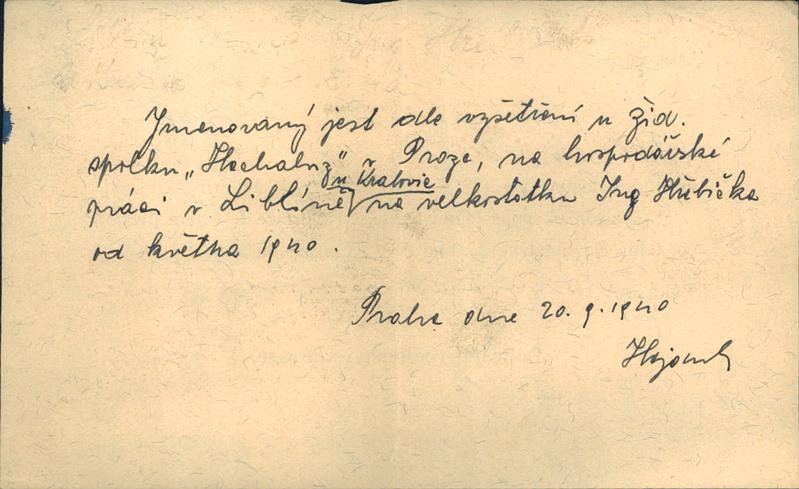 Jmenovaný jest dle vyšetření u žid.
spolku „Hechaluz" v Praze, na hospodářské
práci v Liblíně u Kralovic na velkostatku Ing Hřibička
od května 1940.
Praha dne 20. 9. 1940